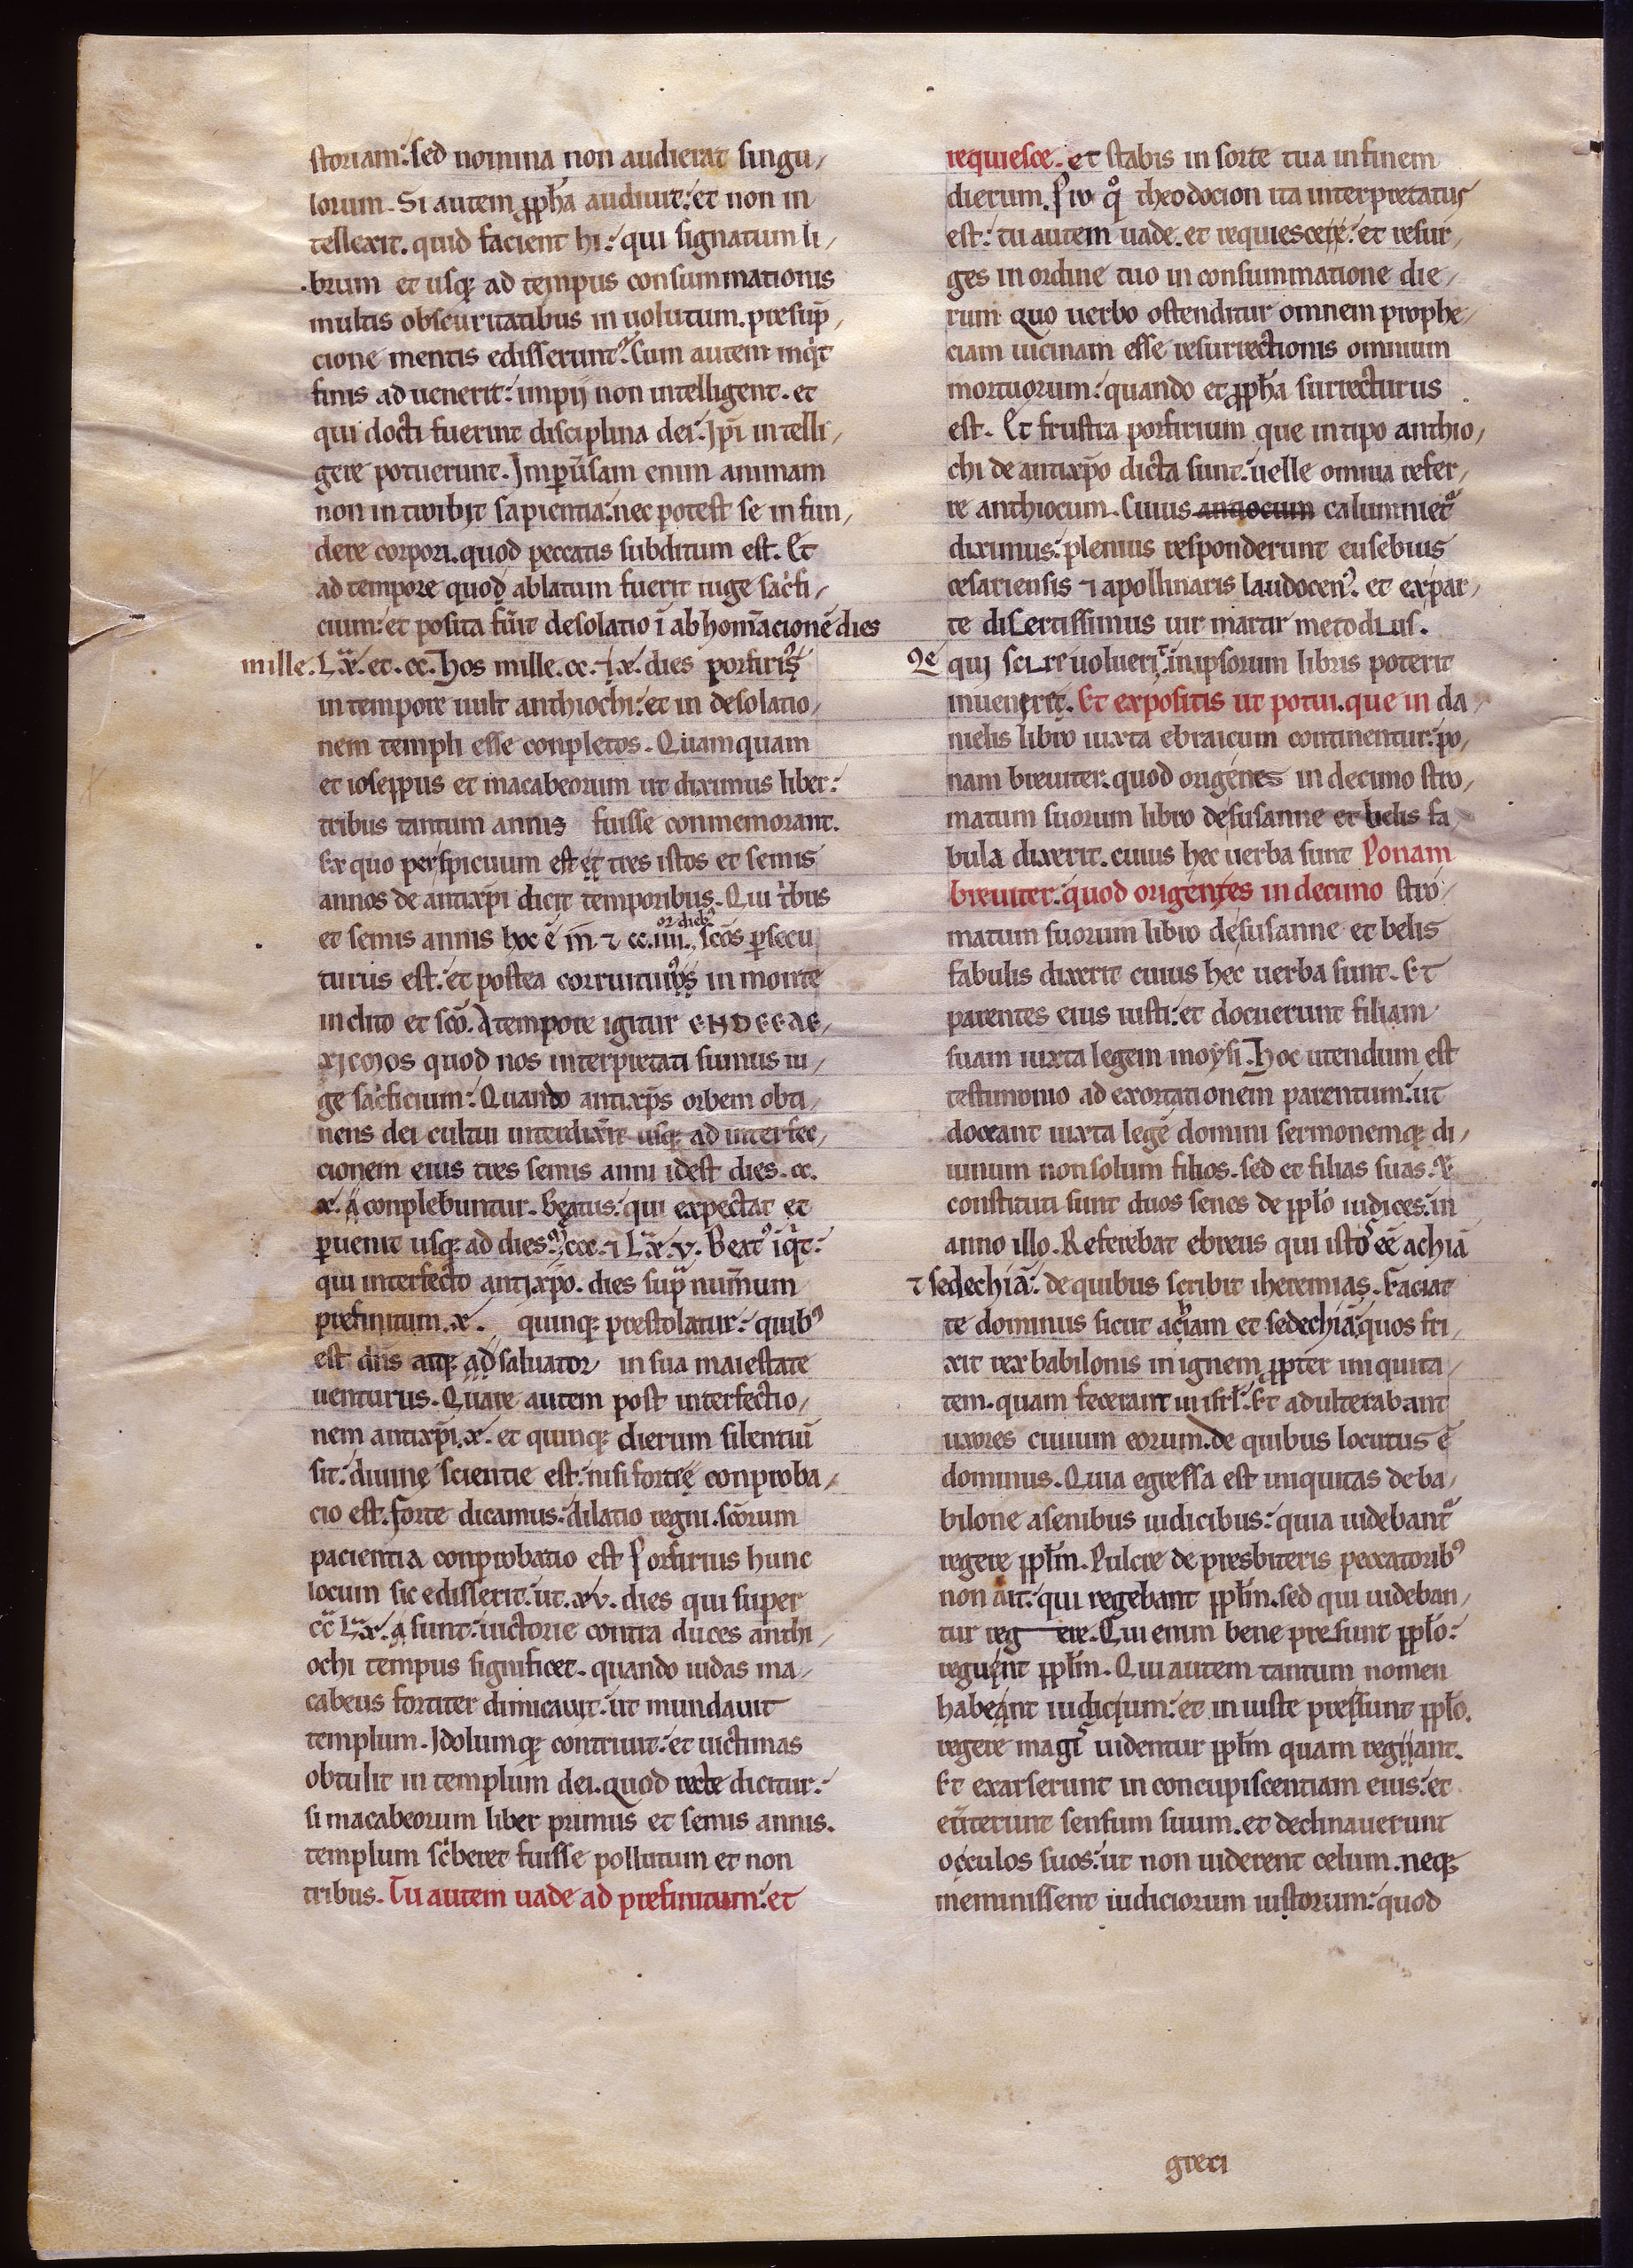 storiam: sed nomina non audierat singu/
lorum. Si autem ꝓph̄a audiuit: et non in
tellexit. quid facient hi: qui signatum li/
brum et usq; ad tempus consummationis
multis obscuritatibus in uolutum. presup̄/
cione mentis edisserunt? Cum autem inq̇t
finis ad uenerit: impij non intelligent. et
qui docti fuerint disciplina dei: Ip̄i intelli/
gere potuerunt. In peruersam enim animam
non introibit sapientia: nec potest se in fun/
dere corpori. quod peccatis subditum est. Et
ad tempore quod ablatum fuerit iuge sac̀fi/
cium: et posita fūit desolatio ī abhom̄acionē dies
mille. Lxͣ. et. cc. Hos mille. cc. ⁊ x. dies porfiriꝰs
in tempore uult anthiochi: et in desolatio/
nem templi esse conpletos. Quamquam
et iosejpus et macabeorum ut diximus liber:
tribus tantum annis fuisse conmemorant.
Ex quo perspicuum est et tres istos et semis
annos de antixp̄i dicit temporibus. Qui t̀bus
et semis annis hoc ē m̄. ⁊ cc. iiii. or dieb; sc̄os ꝑsecu
turus est: et postea corruiturꝰs in monte
inclito et sc̄o. A tempore igitur ENDEEAE/
XICMOS quod nos interpretati sumus iu/
ge sac̀ficium: Quando antixp̄s orbem obti/
nens dei cultui interdixīt usq; ad interfec/
cionem eius tres semis anni idest dies. cc.
x. a conplebuntur. Beatus: qui expectat et
ꝑuenit usq; ad dies. ccc. ⁊ Lxͣ. v. Beatꝰ iq̇t:
qui interfecto antixp̄o. dies sup̄ num̄um
prefinitum. x. quinq; prestolatur: quibꝰ
est dn̄s atq; ad saluator in sua maiestate
uenturus. Quare autem post interfectio/
nem antixp̄i. x. et quinq; dierum silentiū
sit: diuine scientie est: nisi forte conproba/
cio est. forte dicamus: dilatio regni sc̄orum
pacientia conprobatio est Porfirius hunc
locum sic edisserit: ut. xv. dies qui super
cc̄ Lxͣ. a sunt: uictorie contra duces anthi/
ochi tempus significet. quando iudas ma/
cabeus fortiter dimicauit: ut mundauit
templum. Idolumq; contriuit: et uictimas
obtulit in templum dei. quod recte dicitur:
si macabeorum liber primus et semis annis.
templum sc̀beret fuisse pollutum et non
tribus. Tu autem uade ad prefinitum: et
requiesce. et stabis in sorte tua in finem
dierum. Pro qͦ theodocion ita interpretatus
est: tu autem uade. et requiescere: et resur/
ges in ordine tuo in consummatione die/
rum Quo uerbo ostenditur omnem prophe/
ciam uicinam esse resurrectionis omnium
mortuorum: quando et ꝓph̄a surrecturus
est. Et frustra porfirium que in tipo anthio/
chi de antixp̄o dicta sunt: uelle omnia refer/
re anthiocum. Cuius antiocum calumnietᷣ
diximus: plenius responderunt eusebius
cesariensis ⁊ apollinaris laudocenꝰ. et ex par/
te disertissimus uir martir metodius.
Qe qui scire uolueri᷒t: in ipsorum libris poterit
inuenerit. Et expositis ut potui. que in da/
nielis libro iuxta ebraicum continentur: po/
nam breuiter. quod origenes in decimo stro/
matum suorum libro de susanne et belis fa/
bula dixerit. cuius hec uerba sunt Ponam
breuiter: quod origentes in decimo stro/
matum suorum libro de susanne et belis
fabulis dixerit cuius hec uerba sunt. Et
parentes eius iusti: et docuerunt filiam
suam iuxta legem moysi. Hoc utendum est
testimonio ad exortationem parentum: ut
doceant iuxta legē domini sermonemq; di/
uinum non solum filios. sed et filias suas. Et
constituti sunt duos senes de ꝓpl̄o iudices: in
anno illo. Referebat ebreus qui istos ēē achiā
⁊ sedechiā: de quibus scribit iheremias. Faciat
te dominus sicut aciam et sedechiā: quos fri/
xit rex babilonis in ignem ꝓpter iniquita/
tem. quam fecerant in isrl̄. Et adulterabant
uxores ciuium eorum. de quibus locutus ē
dominus. Quia egressa est iniquitas de ba/
bilone a senibus iudicibus: quia uidebantᷣ
regere ꝓpl̄m. Pulcre de presbiteris peccatoribꝰ
non ait: qui regebant ꝓpl̄m. sed qui uideban/
tur reg ere. Qui enim bene presunt ꝓpl̄o:
reguent ꝓpl̄m. Qui autem tantum nomen
habeant iudicium: et in iuste pressunt ꝓpl̄o.
regere magis uidentur ꝓpl̄m quam regijant.
Et exarserunt in concupiscentiam eius: et
eūterunt sensum suum. et declinauerunt
occulos suos: ut non uiderent celum. neq;
meminissent iudiciorum iustorum: quod
greci